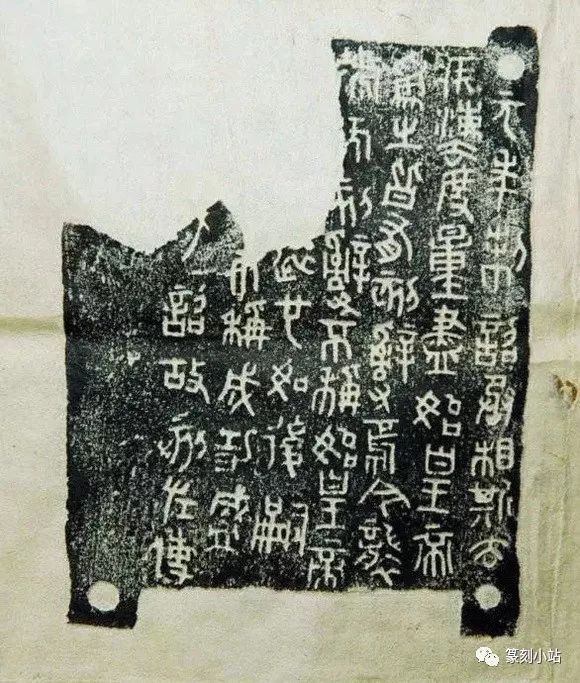 元年制詔丞相斯去
疾法度量盡始皇帝
為之皆有刻辭焉今襲
號而刻辭不稱始皇帝
也如後嗣
不稱成功盛
詔故刻左使
篆刻小站